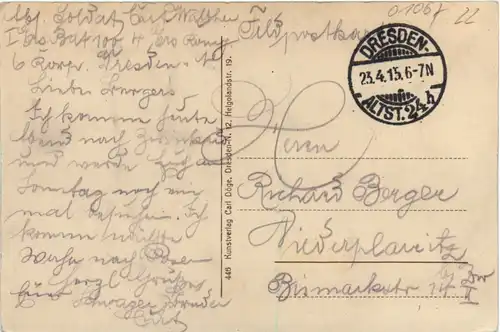 Abs. Soldat Curt Walther
I. Ers. Bat 100 4 Ers Komp
6 Korp. Dresden-N.
Liebe Bergers
Ich komme heute
Abend nach Zwickau
und werde
Sonntag noch ein
mal besuchen. Ich
komme nächste
Woche nach
Herzl. Grüße
Euer Schwager Bruder
Curt
Feldpostkarte
01067 22
DRESDEN-
23.4.15. 6-7N
ALTST. 24 h
Herrn
Richard Berger
Niederplanitz
Bismarckstr 14 I
445 Kunstverlag Carl Döge, Dresden-N. 12, Helgolandstr. 19.